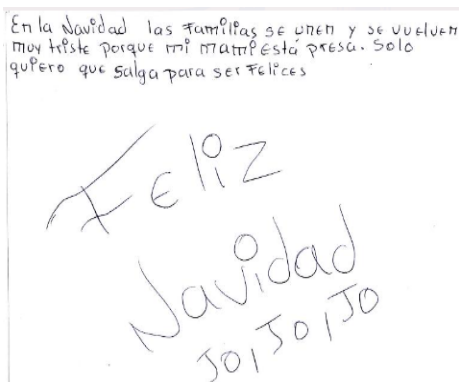 En la Navidad las Familias se unen y se vuelven
muy triste porque mi mami está presa. Solo
quiero que salga para ser Felices
Feliz
Navidad
Jo, Jo, Jo